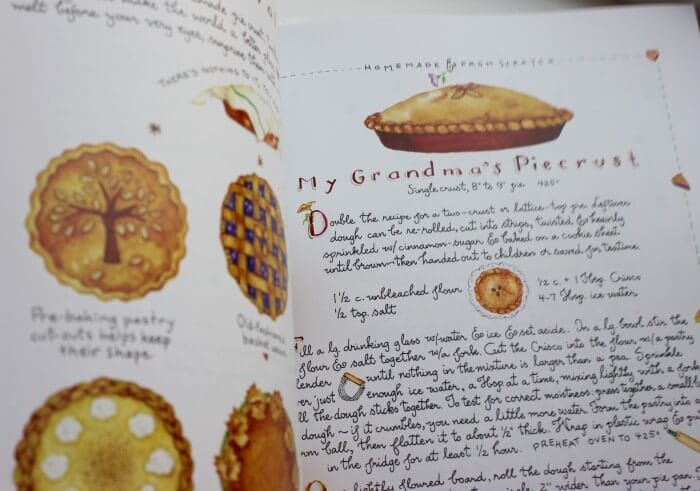 melt before your very eyes, surprise the
make the world a better place
THERE'S NOTHING TO IT
Pre-baking pastry
cut-outs helps keep
their shape.
Old-fashioned
basket
HOMEMADE & FROM SCRATCH
My Grandma's Piecrust
Single crust, 8" to 9" pie 425°
Double the recipe for a two-crust or lattice-top pie. Leftover
dough can be re-rolled, cut into strips, twisted, & heavily
sprinkled w/ cinnamon-sugar & baked on a cookie sheet
until brown—then handed out to children or saved for teatime.
1 1/2 c. unbleached flour
1/2 tsp. salt
1/2 c. + 1 Tbsp. Crisco
4-7 Tbsp. ice water
Fill a lg. drinking glass w/water & ice & set aside. In a lg. bowl stir the
flour & salt together w/a fork. Cut the Crisco into the flour w/a pastry
until nothing in the mixture is larger than a pea. Sprinkle
just enough ice water, a Tbsp. at a time, mixing lightly with a fork
the dough sticks together. To test for correct moistness: press together a small
dough ~ if it crumbles, you need a little more water. Form the pastry into a
ball, then flatten it to about 1/2" thick. Wrap in plastic wrap &
in the fridge for at least 1/2 hour. PREHEAT OVEN TO 425°
lightly floured board, roll the dough starting from the
2" wider than your pie pan.